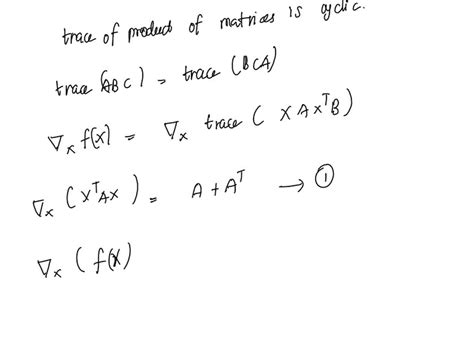 trace of product of matrices is cyclic.
trace (ABC) = trace (BCA)
∇ₓ f(x) = ∇ₓ trace ( X A Xᵀ B )
∇ₓ ( Xᵀ A X ) = A + Aᵀ → ①
∇ₓ ( f(x)